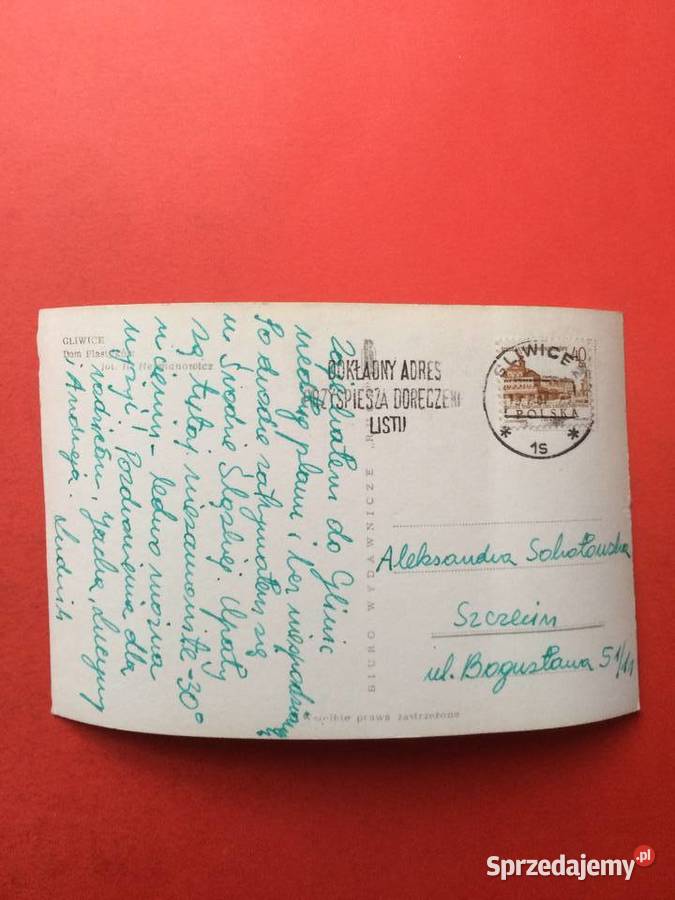 GLIWICE
Dom Plastyków
fot. H. Hermanowicz
Zajechałem do Gliwic
według planu i bez niespodzianek
Po drodze zatrzymałem się
w Środzie Śląskiej. Upały
są tutaj niesamowite - 30°
w cieniu - ledwo można
wyżyć! Pozdrowienia dla
rodziców, Jacka, Lucyny
i Andrzeja. Ludwik
BIURO WYDAWNICZE „R
DOKŁADNY ADRES
PRZYSPIESZA DORĘCZENI
LISTU
GLIWICE
1s
40
POLSKA
Aleksandra Sokołowska
Szczecin
ul. Bogusława 51/11
Wszelkie prawa zastrzeżone
Sprzedajemy.pl